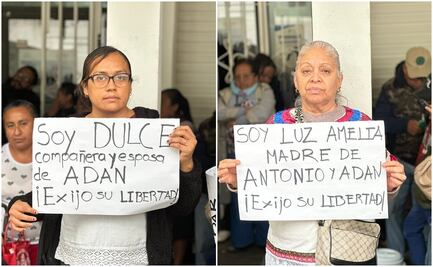 SOY DULCE
compañera y esposa
de ADÁN
¡Exijo SU LIBERTAD!
SOY LUZ AMELIA
MADRE DE
ANTONIO Y ADÁN
¡EXIJO SU LIBERTAD!